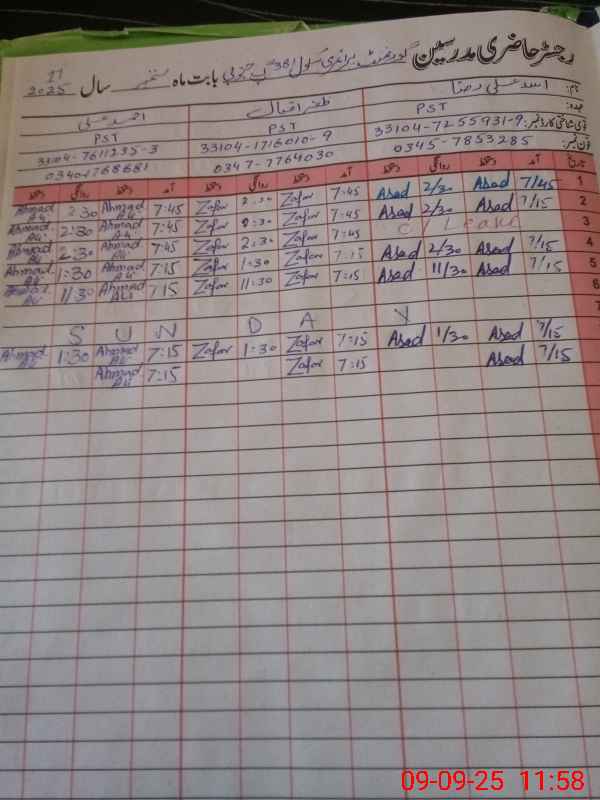 رجسٹر حاضری مدرسین گورنمنٹ پرائمری سکول 381 گ ب جنوبی بابت ماہ ستمبر سال 2025
نام: اسد علی رضا ظفر اقبال احمد علی
عہدہ: PST PST PST
قومی شناختی کارڈ نمبر: 33104-7255931-9 33104-1716010-9 33104-7611235-3
فون نمبر: 0345-7853285 0347-7764030 03404768681
تاریخ آمد دستخط روانگی دستخط آمد دستخط روانگی دستخط آمد دستخط روانگی دستخط
1 7/45 Asad 2/30 Asad 7:45 Zafar 2:30 Zafar 7:45 Ahmad Ali 2:30 Ahmad Ali
2 7/15 Asad 2/30 Asad 7:45 Zafar 2:30 Zafar 7:45 Ahmad Ali 2:30 Ahmad Ali
3 C/Leave 7:45 Zafar 2:30 Zafar 7:45 Ahmad Ali 2:30 Ahmad Ali
4 7/15 Asad 2/30 Asad 7:15 Zafar 1:30 Zafar 7:15 Ahmad Ali 1:30 Ahmad Ali
5 7/15 Asad 11/30 Asad 7:15 Zafar 11:30 Zafar 7:15 Ahmad Ali 11:30 Ahmad Ali
6
7 SUNDAY
7/15 Asad 1/30 Asad 7:15 Zafar 1:30 Zafar 7:15 Ahmad Ali 1:30 Ahmad Ali
7/15 Asad 7:15 Zafar 7:15 Ahmad Ali
09-09-25 11:58